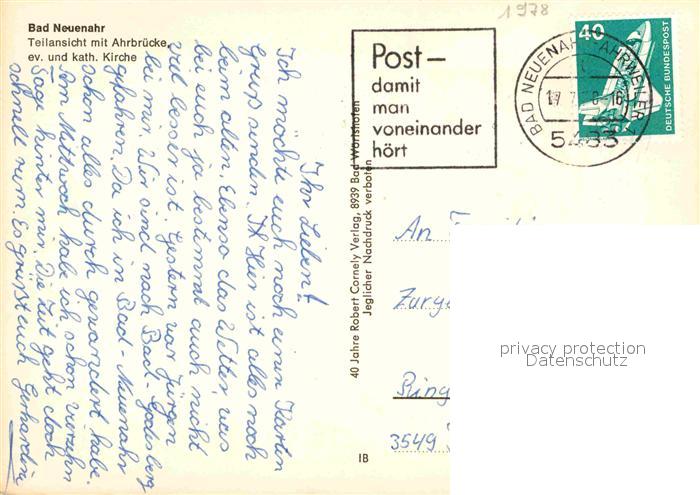 1978
Bad Neuenahr
Teilansicht mit Ahrbrücke,
ev. und kath. Kirche
Post –
damit
man
voneinander
hört
BAD NEUENAHR-AHRWEILER 1
5483
40
DEUTSCHE BUNDESPOST
Ihr Lieben!
Ich möchte euch noch einen Karten
Gruß senden. Hier ist alles noch
beim alten. Ebenso das Wetter, was
bei euch ja bestimmt auch nicht
viel besser ist. Gestern war Jürgen
bei mir. Wir sind nach Bad-Godesberg
gefahren. Da ich in Bad-Neuenahr
schon alles durch gewandert habe.
Am Mittwoch habe ich schon vierzehn
Tage hinter mir. Die Zeit geht doch
schnell rum. Es grüßt euch
40 Jahre Robert Cornely Verlag, 8939 Bad Wörishofen
Jeglicher Nachdruck verboten
An
3549
IB
privacy protection
Datenschutz